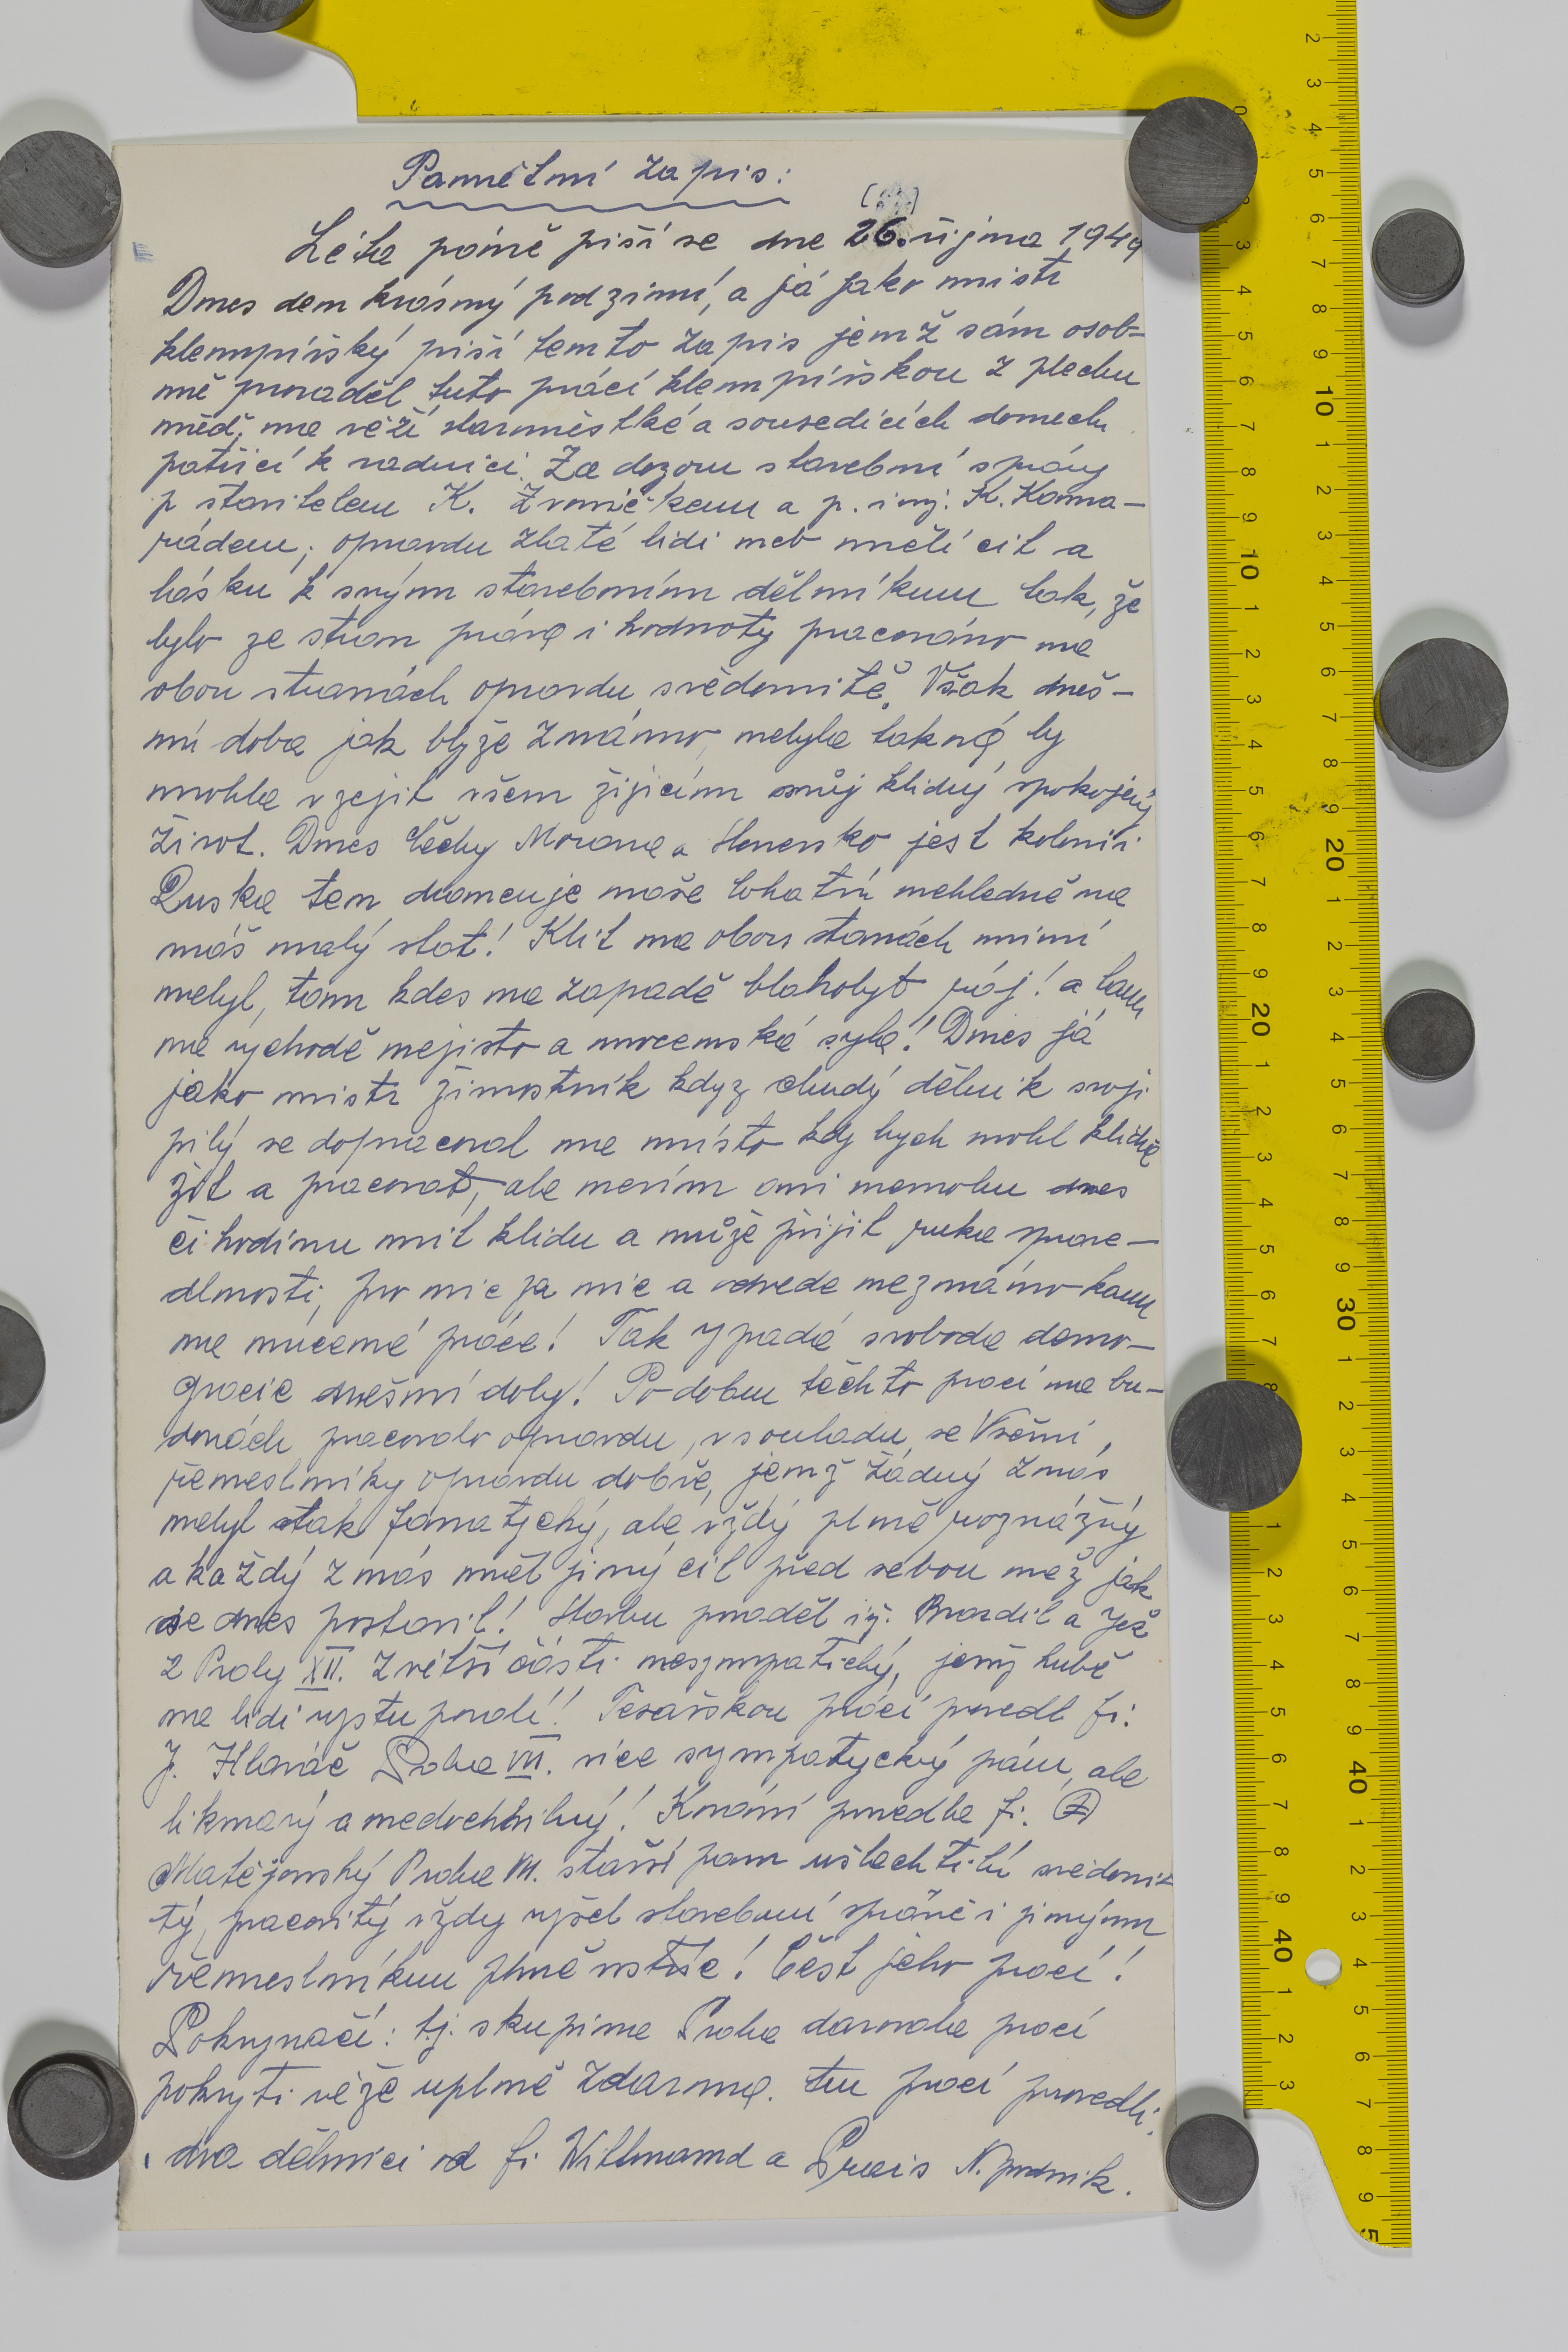 Pamnětní zapis:
Léta páně piší se dne 26. října 1949
Dnes den krásný podzimní, a já jako mistr
klempířský piší tento zapis jenž sám osob-
ně provaděl tuto prácí klempířskou z plechu
měď. na věží staroměstké a sousedících domech
patřicí k radnici. Za dozoru stavební správy
p stavitelem K. Zvoničkem a p. inj. K. Kama-
rádem; opravdu zlaté lidi neb měli cit a
lásku k svým stavebním dělníkum tak, že
bylo ze stran práva i hodnoty pracováno na
obou stranách opravdu svědomitě. Však dneš-
ní doba jak blyže známo, nebyla taková by
mohla vzejít všem žijicím svůj klidný spokojený
život. Dnes Čechy Morava a Slovensko jest kolonií
Ruska ten drancuje naše bohatví nehledně na
náš malý stát! Klit na obou stanách není
nebyl, tam kdes na zapadě blahobyt ráj! a tam
na východě nejisto a mocenská syla! Dnes já
jako mistr žinostník kdyz chudý dělnik svoji
pilý se dopracoval na místo kdy bych mohl klidně
žít a pracovat, ale nevím ani nemohu dnes
či hodinu mít klidu a může přijit ruka sprave-
dlnosti, pro nic za nic a odvede neznámo kam
na nucené práce! Tak vypadá svoboda demo-
gracie dnešní doby! Po dobu těchto prací na bu-
dovách pracovalo opravdu, v souladu, se Všěmi,
řemeslníky opravdu dobře, jenž žádný z nás
nebyl stak fanatycký, ale vždý plně rozvážný
a každý z nás měl jiný cíl před sebou než jak
se dnes postavil! Stavbu provaděl iž. Brazdil a Jež
z Prahy XII. z větší části nesympatický, jenž hubě
na lidi vystupovali! Tesařskou prácí provedl fi.
J. Hlaváč Praha VII. více sympatycký pán, ale
liknavý a nedochvilný! Krování provedla fi. F
Matějovský Praha VII. starší pan ušlechtilí svědomi-
tý, pracovitý vždy vyšel stavební správě i jiným
řemeslníkum plně vstříc! Čěst jeho prací!
Pokryvači: tj. skupina Praha darovala prací
pokrytí věže uplně zdarma. tu prací provedli:
dva dělnici od fi Wittmand a Preis N. podnik.